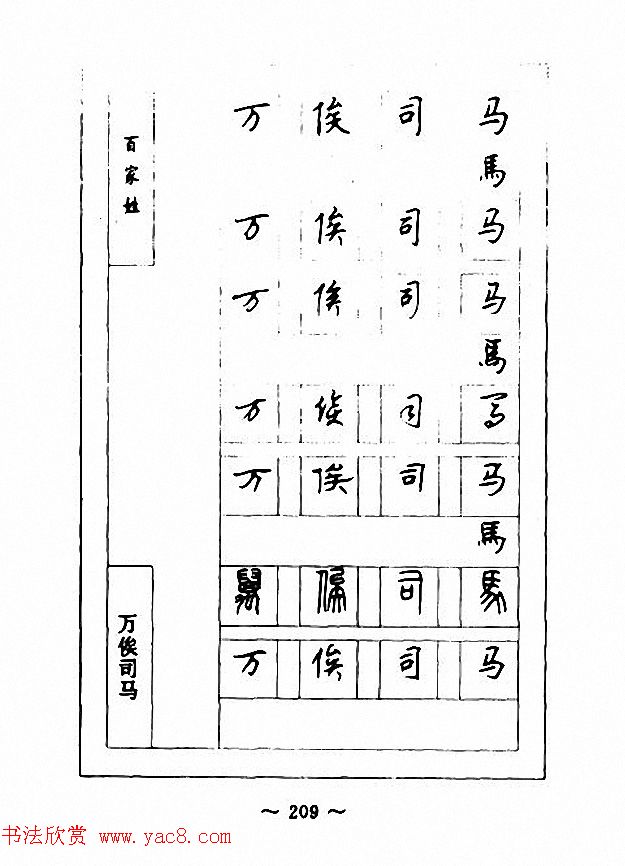 百家姓
万俟司马
馬
万俟司马
万俟司马
馬
万俟司马
万俟司马
馬
萬俟司馬
万俟司马
万俟司马
～ 209 ～
书法欣赏 www.yac8.com